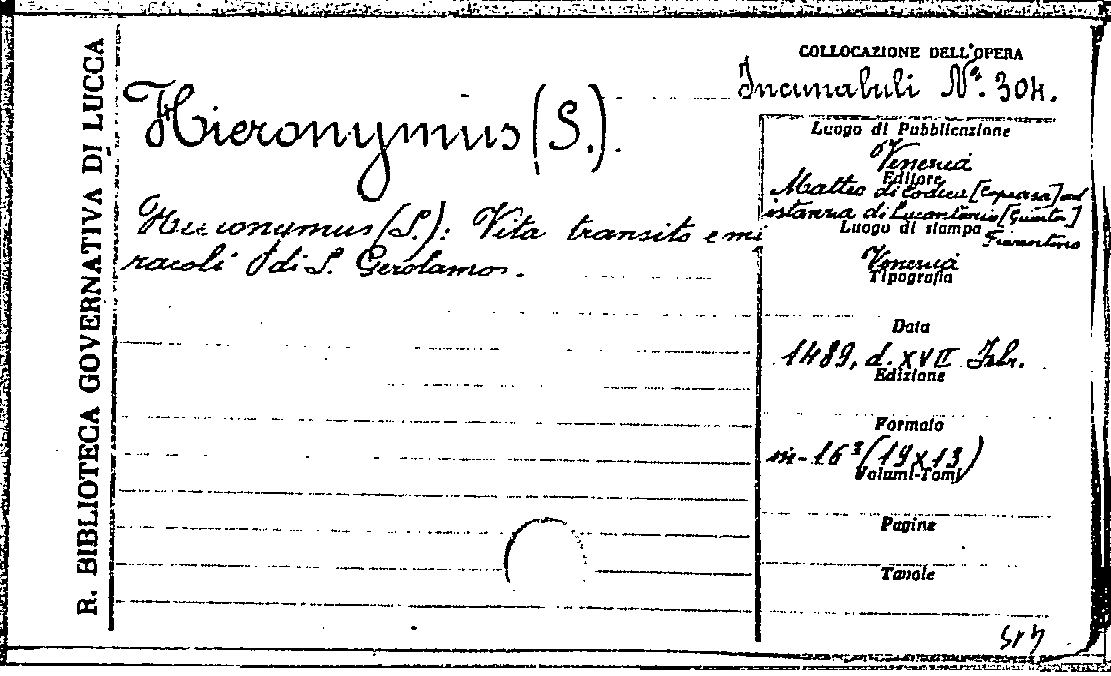 R. BIBLIOTECA GOVERNATIVA DI LUCCA
Hieronymus (S.).
Hieronymus (S.): Vita transito e mi
racoli di S. Gerolamo.
COLLOCAZIONE DELL'OPERA
Incunabuli Nº. 304.
Luogo di Pubblicazione
Venezia
Editore
Matteo di Codeca [Capcasa] ad
istanza di Lucantonio [Giunta]
Fiorentino
Luogo di stampa
Venezia
Tipografia
Data
1489, d. XVII Febr.
Edizione
Formato
in-16º (19x13)
Volumi-Tomi
Pagine
Tavole